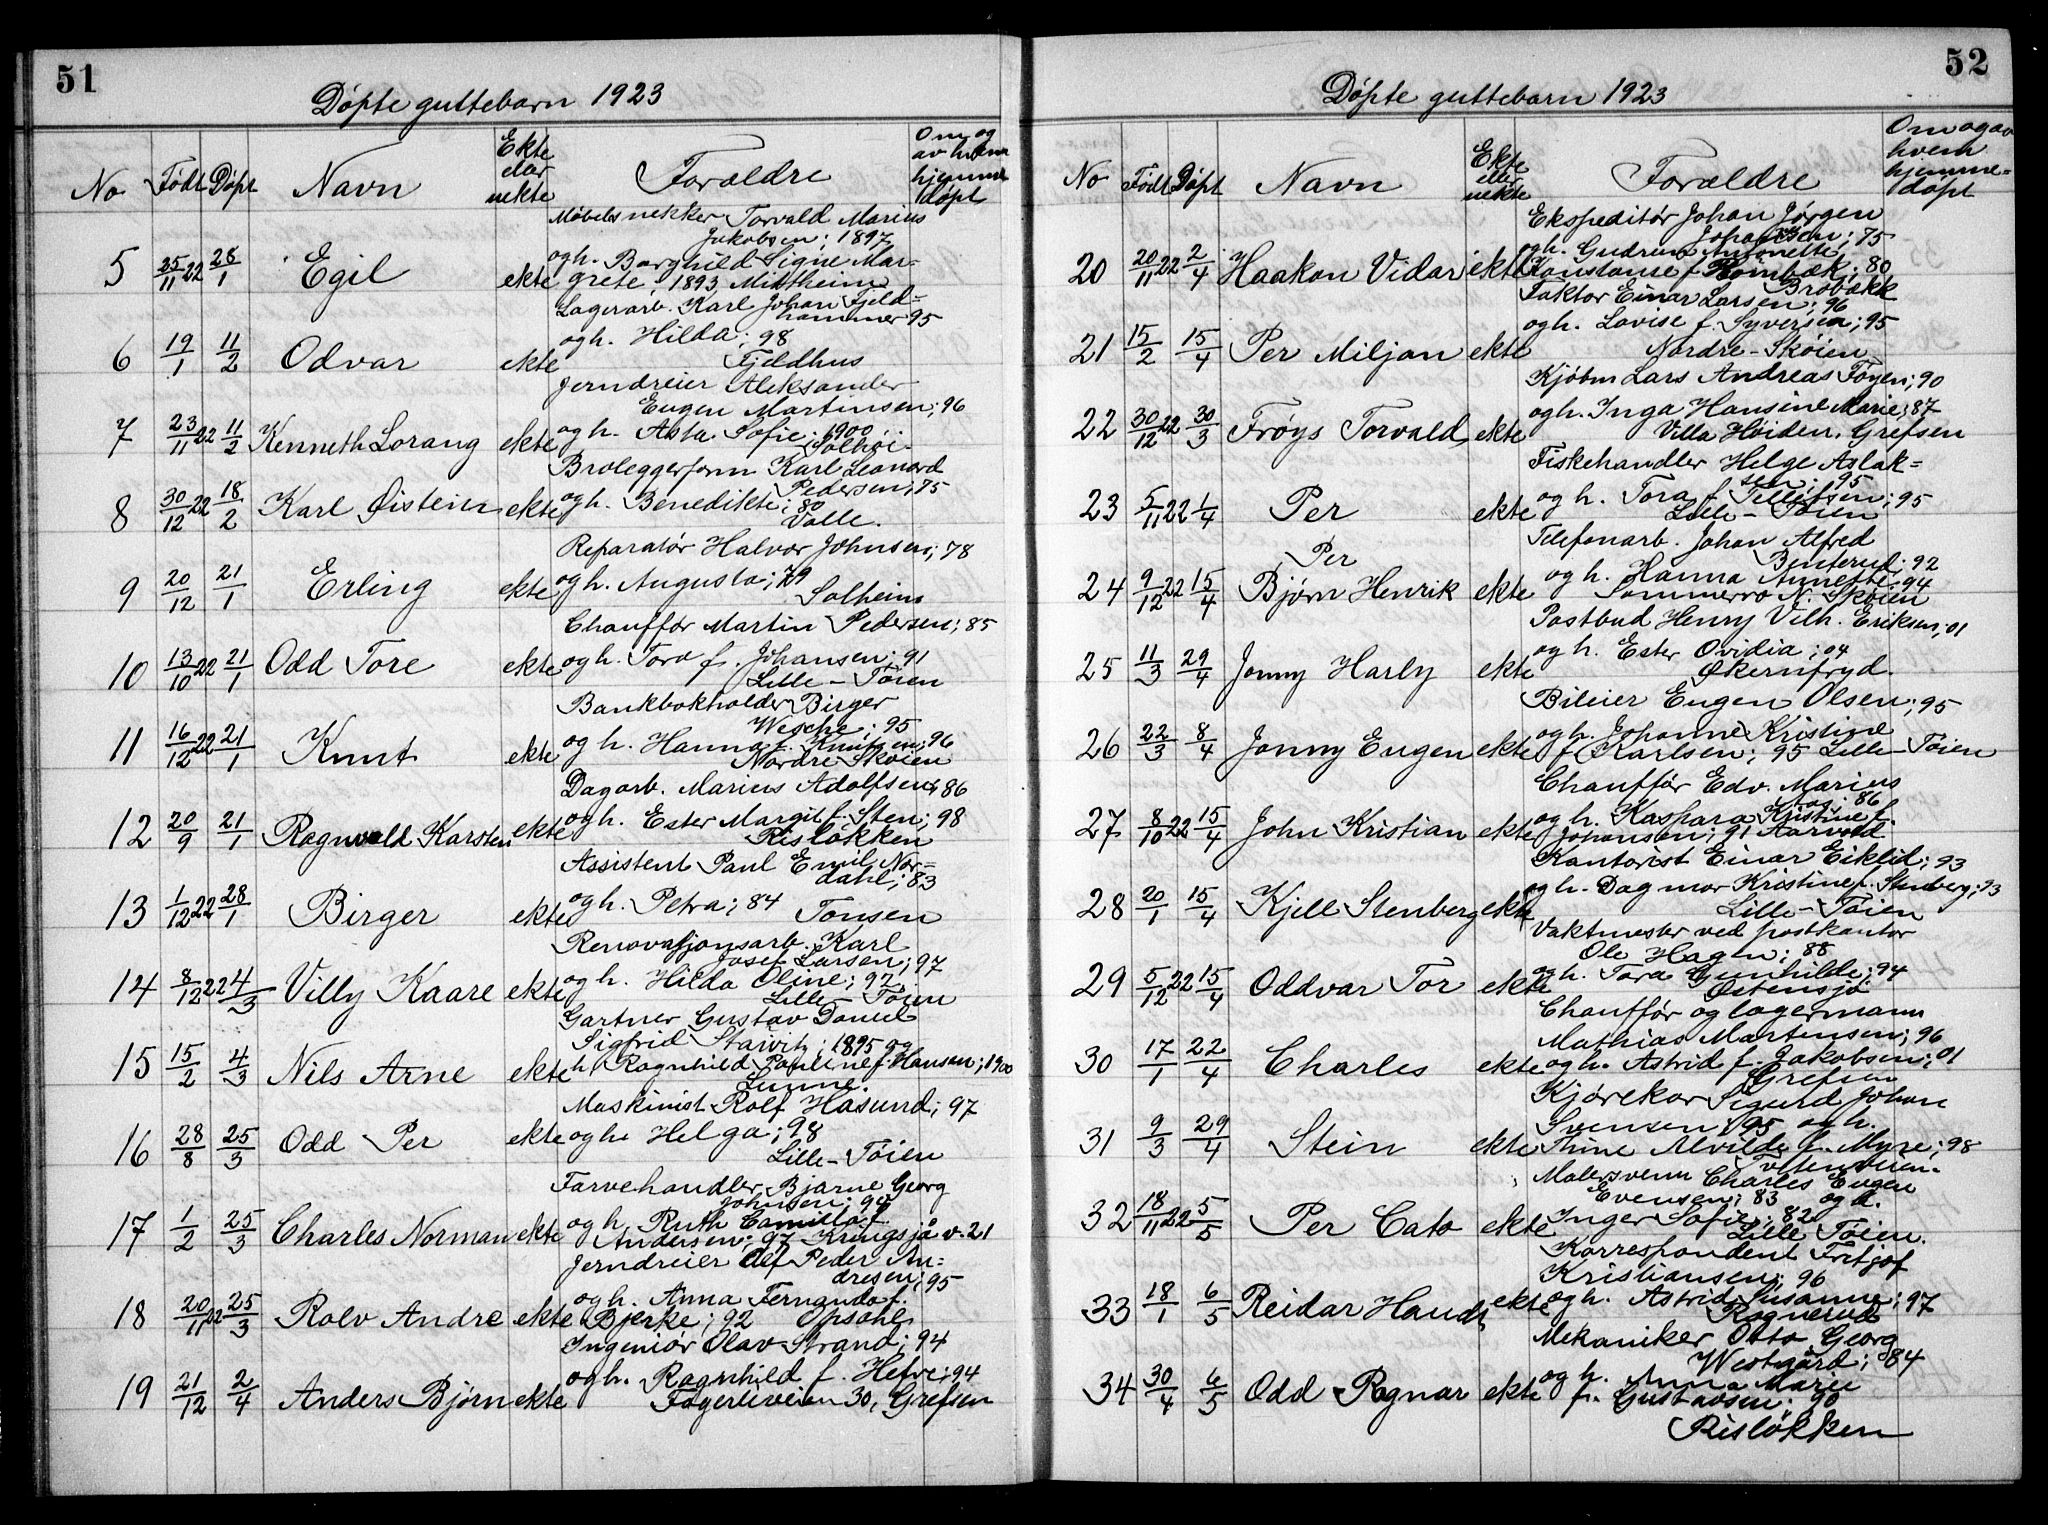 51
Døpte guttebarn 1923
No Født Døpt Navn Ekte eller uekte Forældre Om og av hvem hjemmedøpt
5 25/11 22 28/1 Egil ekte Møbelsnekker Torvald Marius
Jakobsen; 1897
og h. Borghild Signe Mar-
grete, 1893 Mittheim
6 19/1 11/2 Odvar ekte Lagerarb. Karl Johan Fjeld-
hammer 95
og h. Hilda; 98
Fjeldhus
7 23/11 22 11/2 Kenneth Lorang ekte Jerndreier Aleksander
Eugen Martinsen; 96
og h. Asta Sofie; 1900
Solhøi
8 30/12 22 18/2 Karl Øistein ekte Broleggerform Karl Leonard
Pedersen; 75
og h. Benedikte; 80
Valle.
9 20/12 21/1 Erling ekte Reparatør Halvor Johnsen; 78
og h. Augusta; 79
Solheim
10 13/10 22 21/1 Odd Tore ekte Chauffør Martin Pedersen; 85
og h. Tora f. Johansen; 91
Lille-Tøien
11 16/12 22 21/1 Knut ekte Bankbokholder Birger
Wesche; 95
og h. Hanna f. Knutsen; 96
Nordre Skøien
12 20/9 21/1 Ragnvald Karsten ekte Dagarb. Marius Adolfsen; 86
og h. Ester Margit f. Sten; 98
Risløkken
13 1/12 22 28/1 Birger ekte Assistent Paul Emil Nor-
dahl; 83
og h. Petra; 84 Tonsen
14 8/12 22 4/3 Villy Kaare ekte Renovasjonsarb. Karl
Josef Larsen; 97
og h. Hilda Oline; 92
Lille-Tøien
15 15/2 4/3 Nils Arne ekte Gartner Gustav Daniel
Sigfrid Starvitz; 1895 og
h. Ragnhild Pauline f. Hansen; 1900
Linne.
16 28/8 25/3 Odd Per ekte Maskinist Rolf Hasund; 97
og h. Helga; 98
Lille-Tøien
17 1/2 25/3 Charles Norman ekte Farvehandler Bjarne Georg
Johnsen; 94
og h. Ruth Camilla f.
Andersen; 97 Kringsjå v. 21
18 20/11 22 25/3 Rolv Andre ekte Jerndreier Alf Peder An-
dresen; 95
og h. Anna Fernanda f.
Bjerke; 92 Opsahl
19 21/12 2/4 Anders Bjørn ekte Ingeniør Olav Strand; 94
og h. Ragnhild f. Hefre; 94
Fagerliveien 30, Grefsen
52
Døpte guttebarn 1923
No Født Døpt Navn Ekte eller uekte Forældre Om og av hvem hjemme=døpt
20 20/11 22 2/4 Haakon Vidar ekte Ekspeditør Johan Jørgen
Johansen; 75
og h. Gudrun Antonette
Konstanse f. Rombæk; 80
Brobækk
21 15/2 15/4 Per Miljan ekte Faktor Einar Larsen; 96
og h. Lovise f. Syversen; 95
Nordre-Skøien
22 30/12 22 30/3 Frøys Torvald ekte Kjøbm Lars Andreas Føyen; 90
og h. Inga Hansine Marie; 87
Villa Hviden, Grefsen
23 5/11 22 1/4 Per ekte Fiskehandler Helge Aslak=
sen; 95
og h. Tora f. Tellefsen; 95
Lille-Tøien
24 9/12 22 15/4 Per
Bjørn Henrik ekte Telefonarb. Johan Alfred
Binterud; 92
og h. Hanna Annette; 94
Sommerro N. Skøien
25 11/3 29/4 Jonny Harly ekte Postbud Henry Vilh. Eriksen; 01
og h. Ester Ovidia; 04
Økernfryd.
26 22/3 8/4 Jonny Eugen ekte Bileier Eugen Olsen; 95
og h. Johanne Kristine
f. Karlsen; 95 Lille-Tøien
27 8/10 22 15/4 John Kristian ekte Chauffør Edv. Marius
86
og h. Kaspara Kristine f.
Johansen; 91 Aarvold
28 20/1 15/4 Kjell Stenberg ekte Kontorist Einar Eiklid; 93
og h. Dagmar Kristine f. Stenberg; 93
Lille-Tøien
29 5/12 22 15/4 Oddvar Tor ekte Vaktmester ved postkontor
Ole Hagen; 88
og h. Tora Gunhilde; 94
Østensjø
30 17/1 22/4 Charles ekte Chauffør og lagermann
Mathias Martensen; 96
og h. Astrid f. Jakobsen; 01
Grefsen
31 9/3 29/4 Stein ekte Kjørekar Sigurd Johan
Svensen; 95 og h.
Thine Alvilde f. Myre; 98
32 18/11 22 5/5 Per Cato ekte Malersvenn Charles Eugen
Evensen; 83 og h.
Inger Sofie; 82
Lille Tøien.
33 18/1 6/5 Reidar Haudr ekte Korrespondent Fritjof
Kristiansen; 96
og h. Astrid Susanne; 97
Ragnerud
34 30/4 6/5 Odd Ragnar ekte Mekaniker Otto Georg
Westgård; 84
og h. Anna Marie
f. Gustavsen; 90
Risløkken